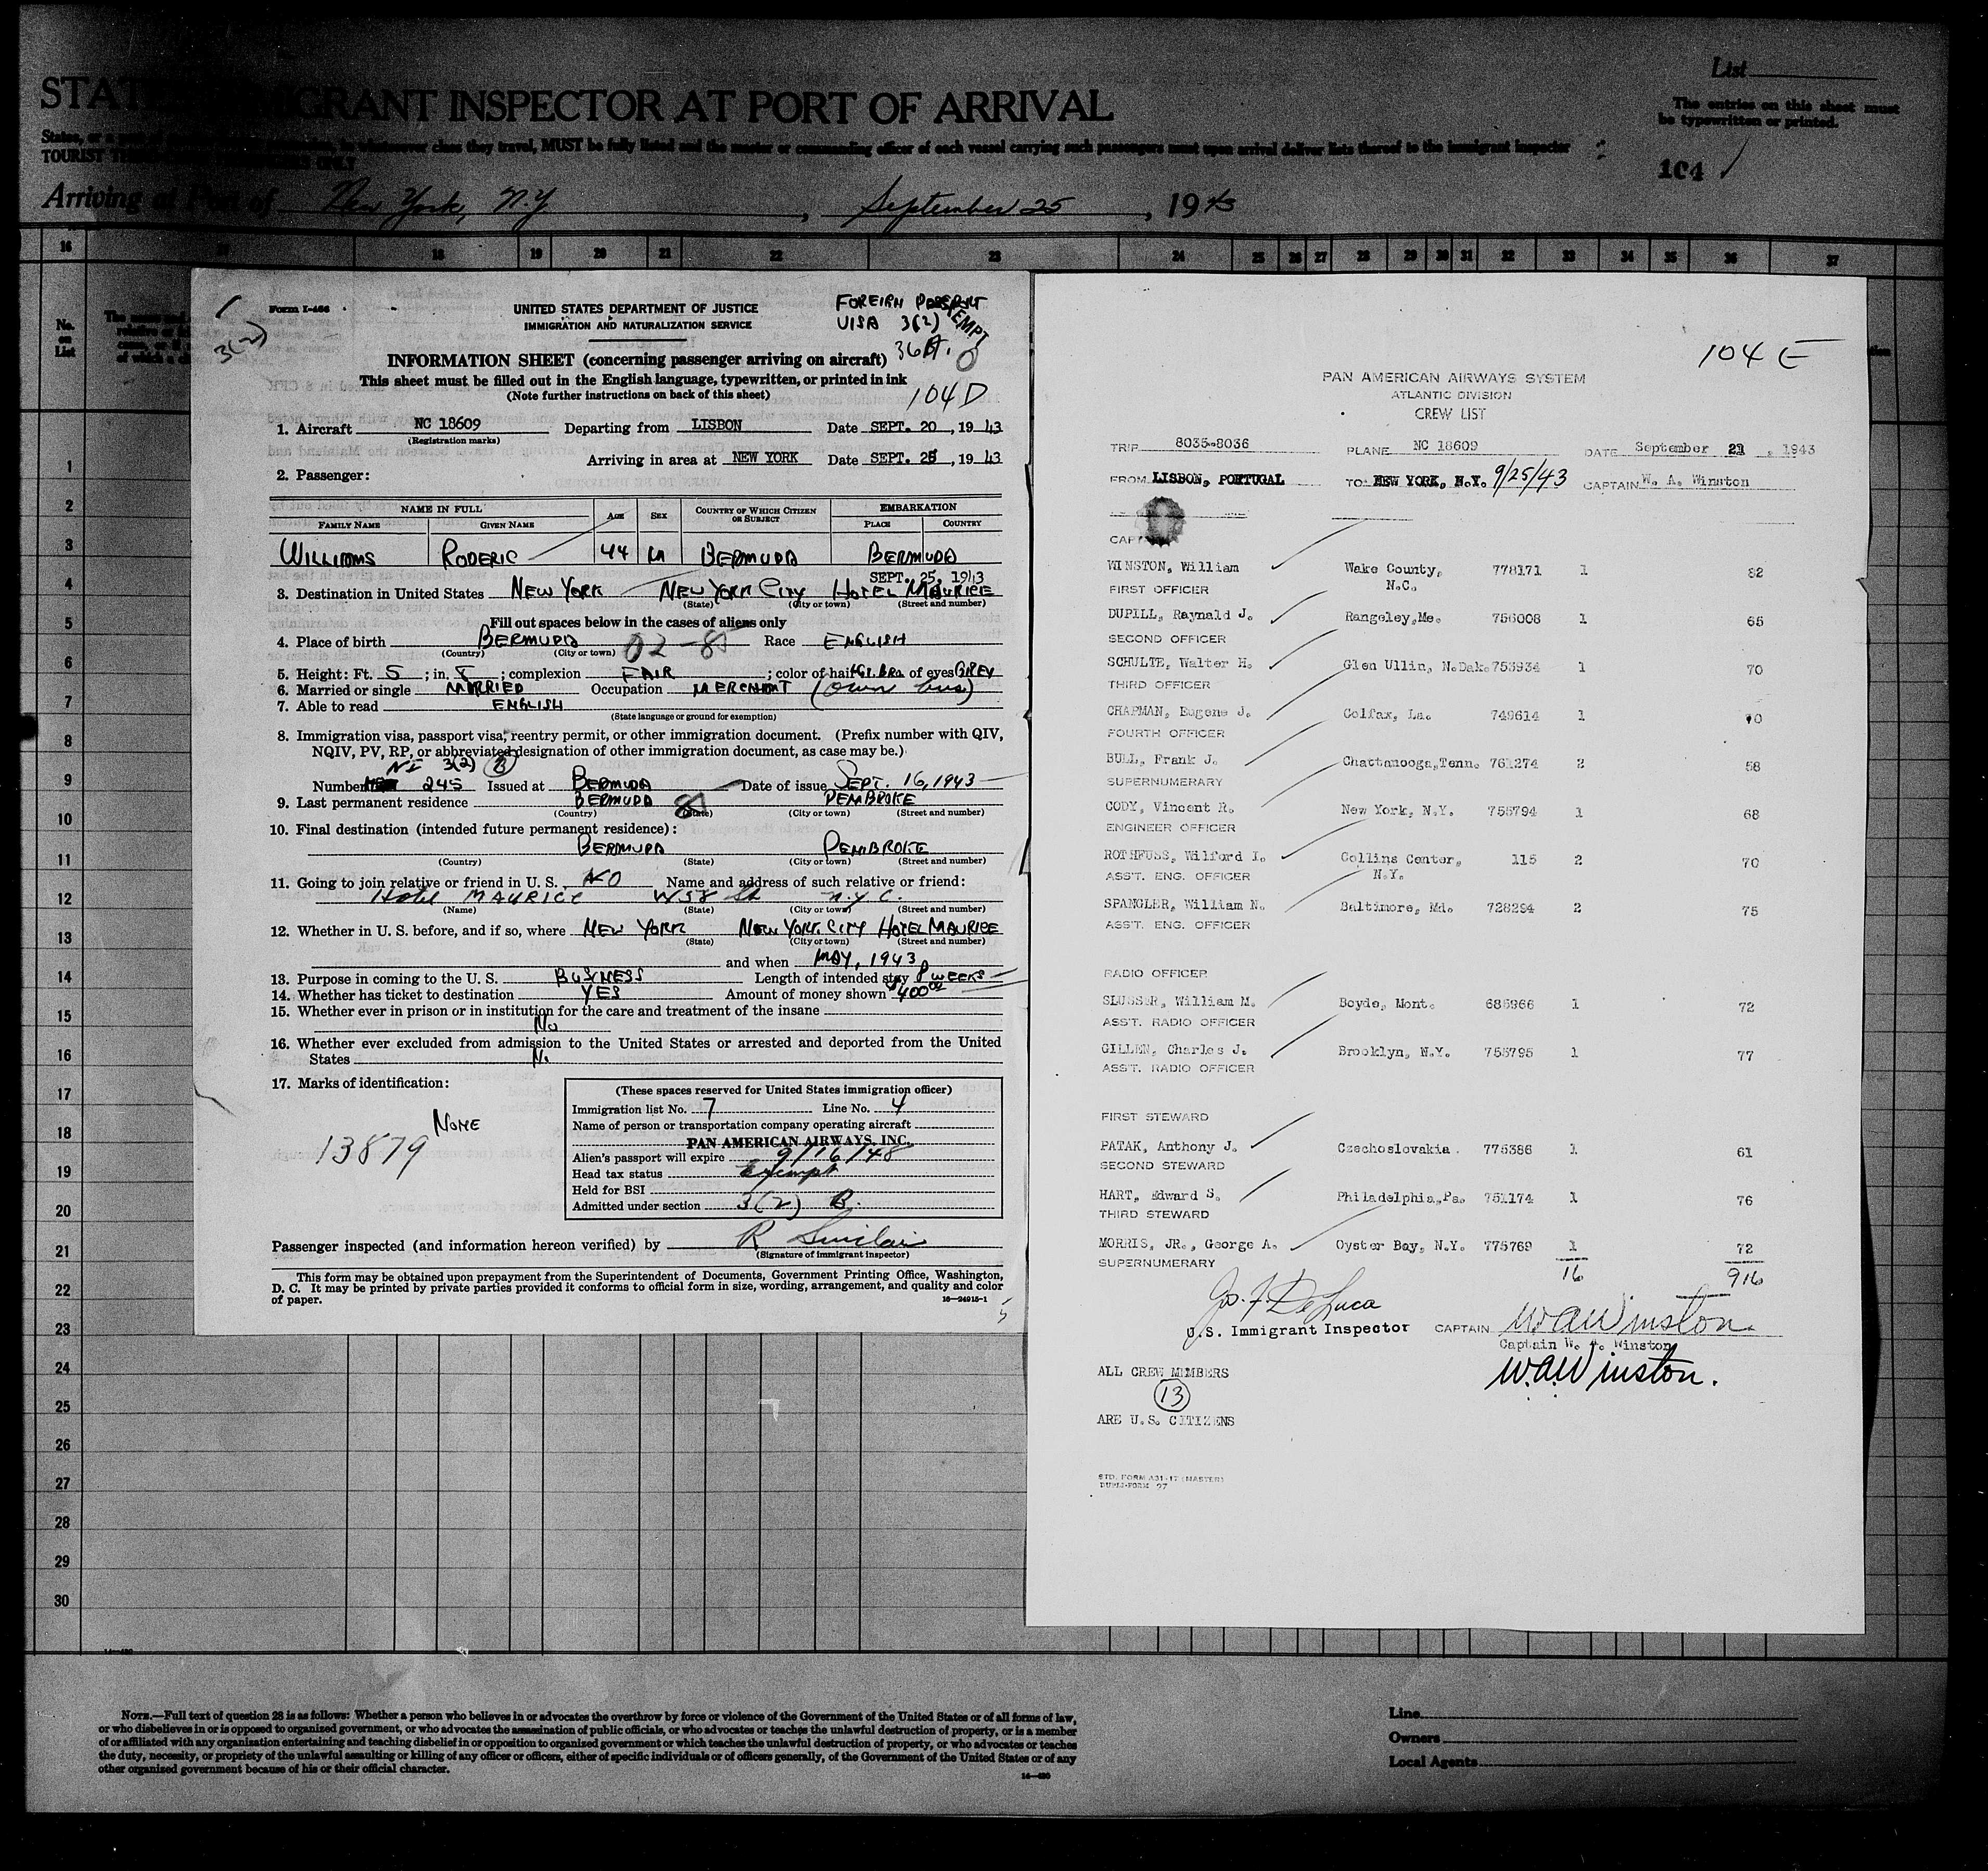 List
GRANT INSPECTOR AT PORT OF ARRIVAL
The entries on this sheet must
be typewritten or printed.
class they travel, MUST be fully listed and the master or commanding officer of each vessel carrying such passengers must upon arrival deliver lists thereof to the immigrant inspector
104
Arriving at Port of New York, N.Y , September 25 , 1943
16 18 19 20 21 22 23 24 25 26 27 28 29 30 31 32 33 34 35 36 37
No. on List
1
2
3
4
5
6
7
8
9
10
11
12
13
14
15
16
17
18
19
20
21
22
23
24
25
26
27
28
29
30
3(2)
Form I-466
UNITED STATES DEPARTMENT OF JUSTICE
IMMIGRATION AND NATURALIZATION SERVICE
VISA 3(2) EXEMPT
INFORMATION SHEET (concerning passenger arriving on aircraft)
This sheet must be filled out in the English language, typewritten, or printed in ink
(Note further instructions on back of this sheet)
104 D
1. Aircraft NC 18609 Departing from LISBON Date SEPT. 20, 1943
(Registration marks)
Arriving in area at NEW YORK Date SEPT. 25, 1943
2. Passenger:
NAME IN FULL AGE SEX COUNTRY OF WHICH CITIZEN OR SUBJECT EMBARKATION
FAMILY NAME GIVEN NAME PLACE COUNTRY
WILLIAMS RODERIC 44 M BERMUDA BERMUDA
SEPT. 25, 1943
3. Destination in United States NEW YORK NEW YORK CITY HOTEL MAURICE
(State) (City or town) (Street and number)
Fill out spaces below in the cases of aliens only
4. Place of birth BERMUDA 02-85 Race ENGLISH
(Country) (City or town)
5. Height: Ft. 5 ; in. 8 ; complexion FAIR ; color of hair Gr. Bro. of eyes GREY
6. Married or single MARRIED Occupation MERCHANT (Own bus)
7. Able to read ENGLISH
(State language or ground for exemption)
8. Immigration visa, passport visa, reentry permit, or other immigration document. (Prefix number with QIV,
NQIV, PV, RP, or abbreviated designation of other immigration document, as case may be.)
NI 3(2) B
Number 245 Issued at BERMUDA Date of issue SEPT. 16, 1943
9. Last permanent residence BERMUDA 85 PEMBROKE
(Country) (State) (City or town) (Street and number)
10. Final destination (intended future permanent residence):
BERMUDA PEMBROKE
(Country) (State) (City or town) (Street and number)
11. Going to join relative or friend in U. S. NO Name and address of such relative or friend:
Hotel MAURICE W 58 St N.Y.C.
(Name) (State) (City or town) (Street and number)
12. Whether in U. S. before, and if so, where NEW YORK NEW YORK CITY HOTEL MAURICE
(State) (City or town) (Street and number)
and when MAY, 1943
13. Purpose in coming to the U. S. BUSINESS Length of intended stay 8 WEEKS
14. Whether has ticket to destination YES Amount of money shown $400.00
15. Whether ever in prison or in institution for the care and treatment of the insane
No
16. Whether ever excluded from admission to the United States or arrested and deported from the United
States No
17. Marks of identification:
NONE
13879
(These spaces reserved for United States immigration officer)
Immigration list No. 7 Line No. 4
Name of person or transportation company operating aircraft
PAN AMERICAN AIRWAYS, INC.
Alien's passport will expire 9/16/48
Head tax status Exempt
Held for BSI
Admitted under section 3(2) B.
Passenger inspected (and information hereon verified) by R Sinclair
(Signature of immigrant inspector)
This form may be obtained upon prepayment from the Superintendent of Documents, Government Printing Office, Washington,
D. C. It may be printed by private parties provided it conforms to official form in size, wording, arrangement, and quality and color
of paper.
16—24915-1
104 E
PAN AMERICAN AIRWAYS SYSTEM
ATLANTIC DIVISION
CREW LIST
TRIP 8035-8036 PLANE NC 18609 DATE September 21, 1943
FROM LISBON, PORTUGAL TO NEW YORK, N.Y. 9/25/43 CAPTAIN W. A. Winston
WINSTON, William Wake County, N.C. 778171 1 82
FIRST OFFICER
DUPILL, Raynald J. Rangeley, Me. 756008 1 65
SECOND OFFICER
SCHULTE, Walter H. Glen Ullin, N.Dak. 753934 1 70
THIRD OFFICER
CHAPMAN, Eugene J. Colfax, La. 749614 1 70
FOURTH OFFICER
BULL, Frank J. Chattanooga, Tenn. 761274 2 58
SUPERNUMERARY
CODY, Vincent R. New York, N.Y. 755794 1 68
ENGINEER OFFICER
ROTHFUSS, Wilford I. Collins Center, N.Y. 115 2 70
ASS'T. ENG. OFFICER
SPANGLER, William N. Baltimore, Md. 728294 2 75
ASS'T. ENG. OFFICER
RADIO OFFICER
SLUSSER, William M. Boyds, Mont. 685966 1 72
ASS'T. RADIO OFFICER
GILLEN, Charles J. Brooklyn, N.Y. 755795 1 77
ASS'T. RADIO OFFICER
FIRST STEWARD
PATAK, Anthony J. Czechoslovakia 775386 1 61
SECOND STEWARD
HART, Edward S. Philadelphia, Pa. 751174 1 76
THIRD STEWARD
MORRIS, JR., George A. Oyster Bay, N.Y. 775769 1 72
SUPERNUMERARY
16 916
Jos. F. DeLuca
U.S. Immigrant Inspector CAPTAIN W A Winston
Captain W. A. Winston
W.A.Winston.
ALL CREW MEMBERS
13
ARE U.S. CITIZENS
STD. FORM A31-17 (MASTER)
DUPLI-FORM 97
NOTE.—Full text of question 28 is as follows: Whether a person who believes in or advocates the overthrow by force or violence of the Government of the United States or of all forms of law,
or who disbelieves in or is opposed to organized government, or who advocates the assassination of public officials, or who advocates or teaches the unlawful destruction of property, or is a member
of or affiliated with any organization entertaining and teaching disbelief in or opposition to organized government or which teaches the unlawful destruction of property, or who advocates or teaches
the duty, necessity, or propriety of the unlawful assaulting or killing of any officer or officers, either of specific individuals or of officers generally, of the Government of the United States or of any
other organized government because of his or their official character.
Line
Owners
Local Agents